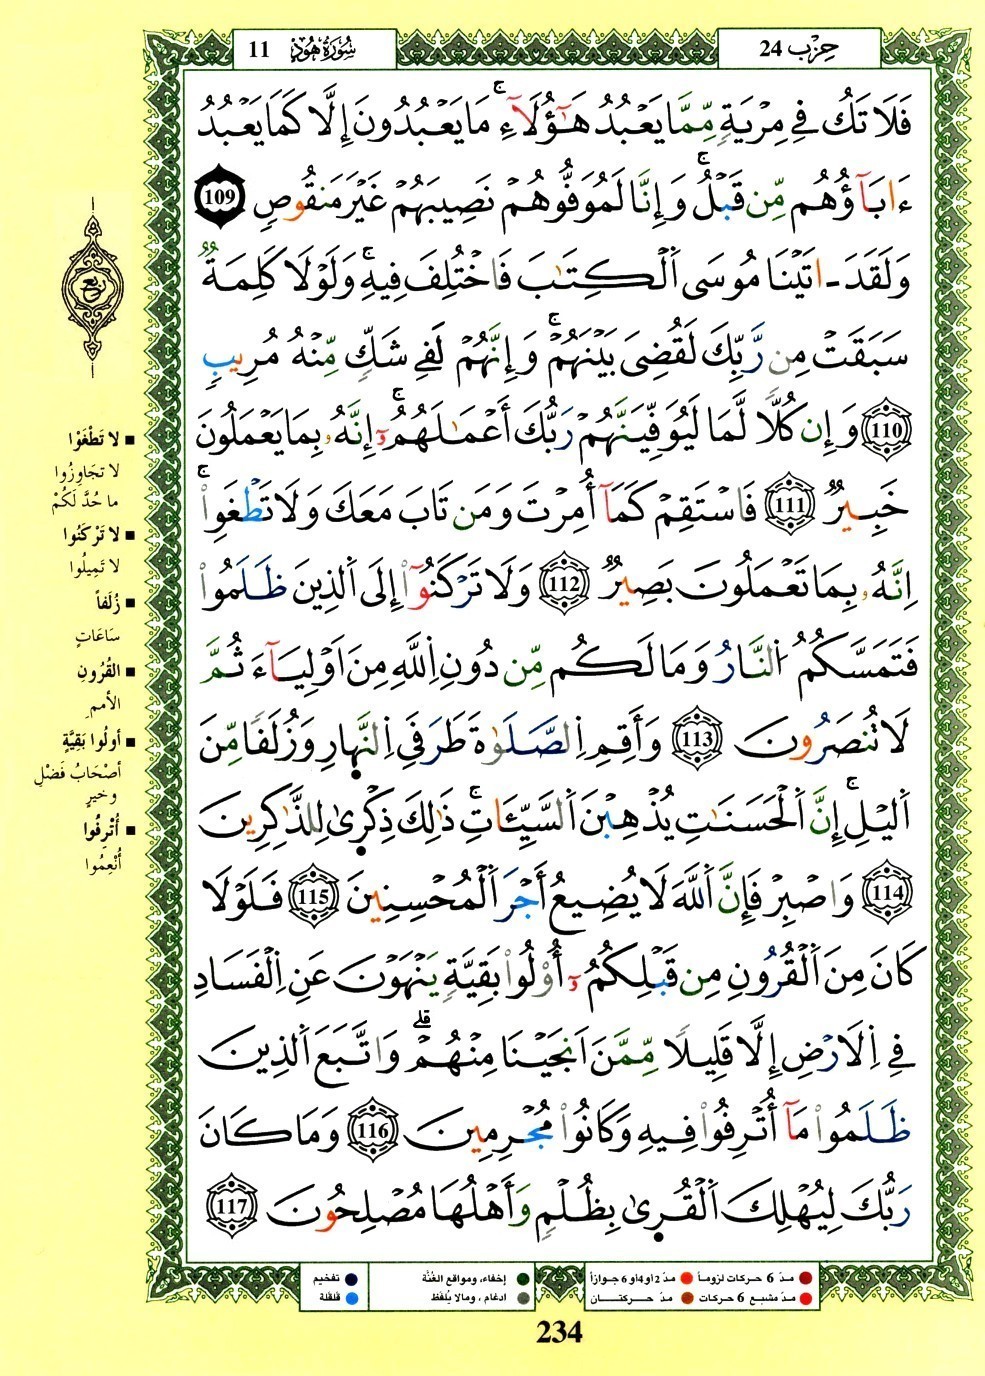 حِزْب 24
سُورَةُ هُودٍ 11
فَلَا تَكُ فِي مِرْيَةٍ مِّمَّا يَعْبُدُ هَٰٓؤُلَآءِ ۚ مَا يَعْبُدُونَ إِلَّا كَمَا يَعْبُدُ
ءَابَآؤُهُم مِّن قَبْلُ ۚ وَإِنَّا لَمُوَفُّوهُمْ نَصِيبَهُمْ غَيْرَ مَنقُوصٍ 109
وَلَقَدَ ـ اتَيْنَا مُوسَى اَلْكِتَٰبَ فَاخْتُلِفَ فِيهِ ۚ وَلَوْلَا كَلِمَةٌ
سَبَقَتْ مِن رَّبِّكَ لَقُضِىَ بَيْنَهُمْ ۚ وَإِنَّهُمْ لَفِے شَكٍّ مِّنْهُ مُرِيبٍ
110 وَإِن كُلًّا لَّمَا لَيُوَفِّيَنَّهُمْ رَبُّكَ أَعْمَٰلَهُمُۥٓ ۚ إِنَّهُۥ بِمَا يَعْمَلُونَ
خَبِيرٌ 111 فَاسْتَقِمْ كَمَآ أُمِرْتَ وَمَن تَابَ مَعَكَ وَلَا تَطْغَوِاْ ۚ
اِنَّهُۥ بِمَا تَعْمَلُونَ بَصِيرٌ 112 وَلَا تَرْكَنُوٓاْ إِلَى اَلذِينَ ظَلَمُواْ
فَتَمَسَّكُمُ اُلنَّارُ وَمَا لَكُم مِّن دُونِ اِللَّهِ مِنَ اَوْلِيَآءَ ثُمَّ
لَا تُنصَرُونَ 113 وَأَقِمِ اِلصَّلَوٰةَ طَرَفَيِ اِلنَّهارِ وَزُلَفًا مِّنَ
اَليْلِ ۚ إِنَّ اَلْحَسَنَٰتِ يُذْهِبْنَ اَلسَّيِّـَٔاتِ ۚ ذَٰلِكَ ذِكْرِىٰ لِلذَّٰكِرِينَ
114 وَاصْبِرْ فَإِنَّ اَللَّهَ لَا يُضِيعُ أَجْرَ اَلْمُحْسِنِينَ 115 فَلَوْلَا
كَانَ مِنَ اَلْقُرُونِ مِن قَبْلِكُمُۥٓ أُوْلُواْ بَقِيَّةٍ يَنْهَوْنَ عَنِ اِلْفَسَادِ
فِي اِلَارْضِ إِلَّا قَلِيلًا مِّمَّنَ اَنجَيْنَا مِنْهُمْ ۗ وَاتَّبَعَ اَلذِينَ
ظَلَمُواْ مَآ أُتْرِفُواْ فِيهِ وَكَانُواْ مُجْرِمِينَ 116 وَمَا كَانَ
رَبُّكَ لِيُهْلِكَ اَلْقُرِىٰ بِظُلْمٍ وَأَهْلُهَا مُصْلِحُونَ 117
رُبع
لا تَطْغَوْا
لا تجَاوِزُوا
ما حُدَّ لَكُمْ
لا تَرْكَنُوا
لا تَمِيلُوا
زُلَفاً
سَاعَاتٍ
القُرُونِ
الأممِ
أولُوا بَقِيَّةٍ
أصْحَابُ فَضْلٍ
وخيرٍ
أُتْرِفُوا
أُنْعِمُوا
مدّ 6 حركات لزوماً مدّ 2 أو 4 أو 6 جوازاً
مدّ مشبع 6 حركات مدّ حركتان
إخفاء، ومواقع الغُنَّة
ادغام ، ومالا يُلفظ
تفخيم
قلقلة
234